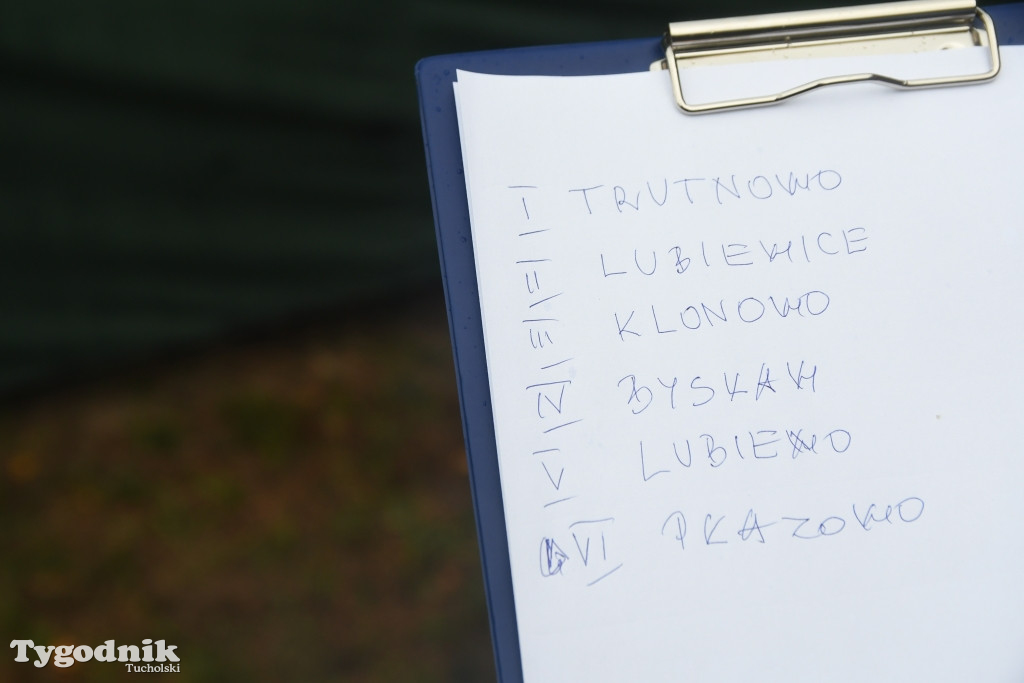 I TRUTNOWO
II LUBIEWICE
III KLONOWO
IV BYSŁAW
V LUBIEWO
VI PŁAZOWO
Tygodnik
Tucholski